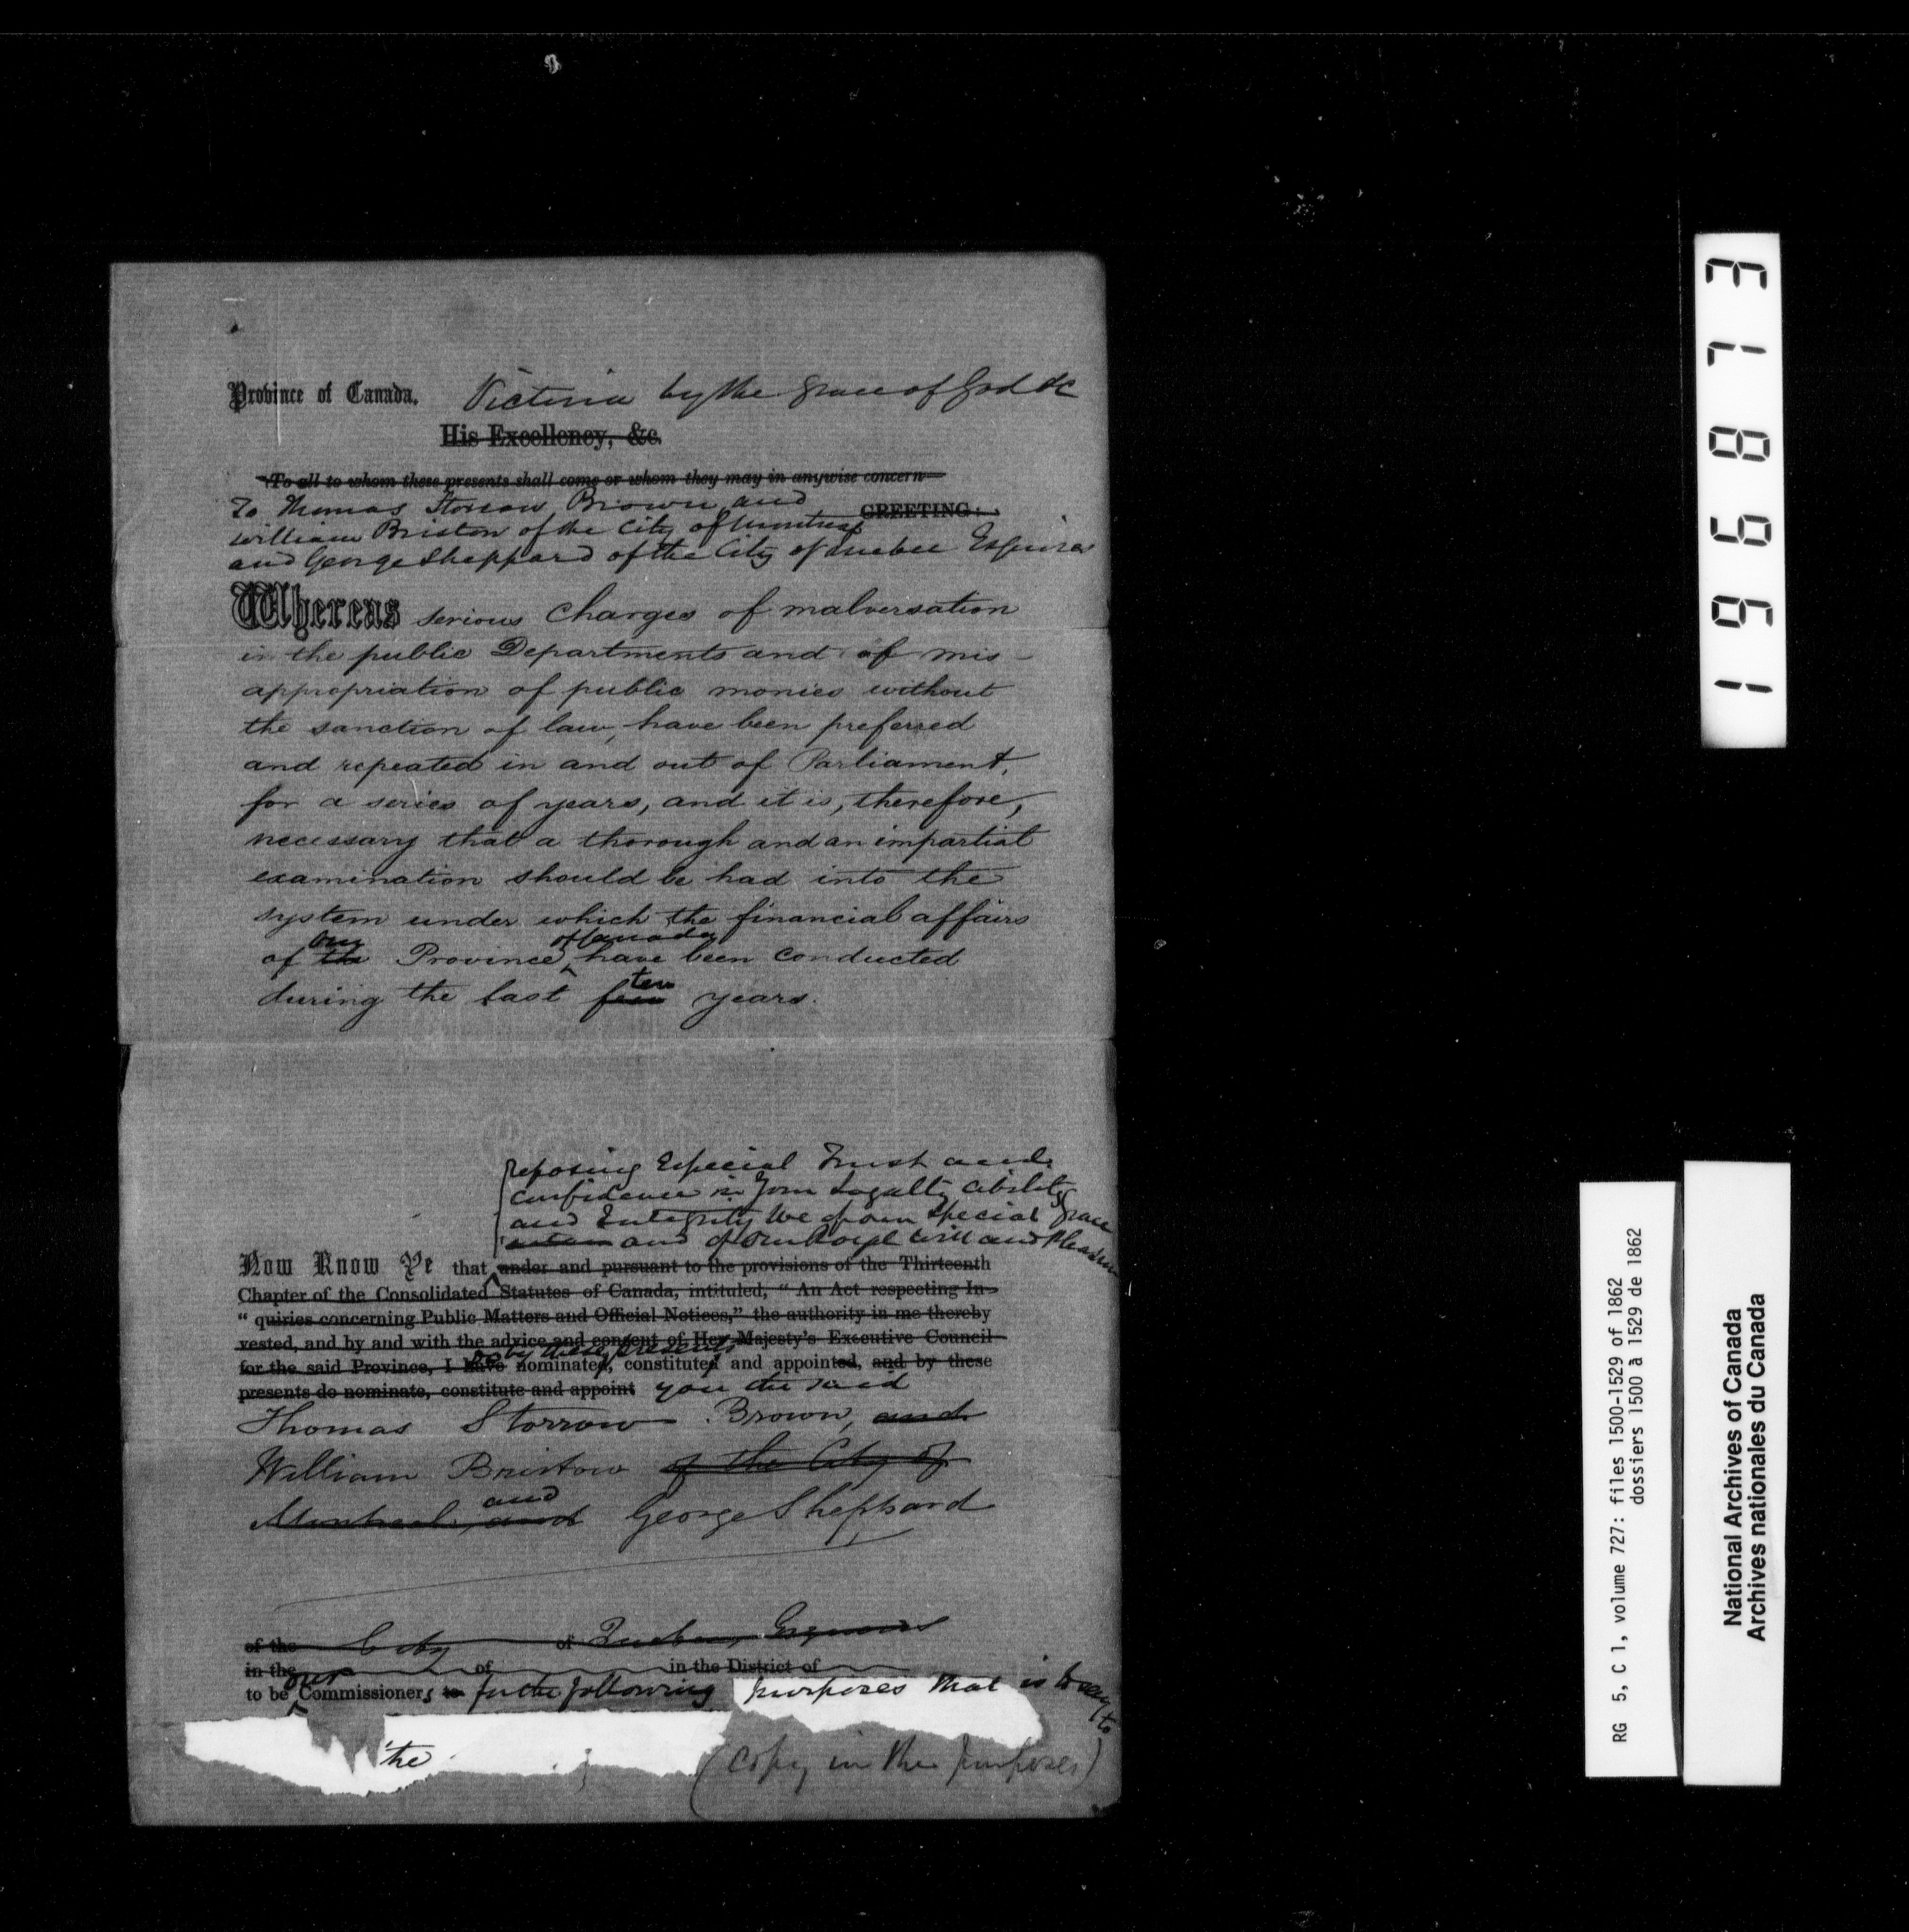 Province of Canada. Victoria by the Grace of God &c
His Excellency, &c.
To all to whom these presents shall come or whom they may in anywise concern
To Thomas Storrow Brown and
GREETING:
William Bristow of the City of Montreal
and George Sheppard of the City of Quebec Esquires
Whereas serious charges of malversation
in the public Departments and of mis-
appropriation of public monies without
the sanction of law, have been preferred
and repeated in and out of Parliament,
for a series of years, and it is, therefore,
necessary that a thorough and an impartial
examination should be had into the
system under which the financial affairs
our of Canada
of the Province have been conducted
ten
during the last few years.
reposing Especial Trust and
confidence in Your Loyalty ability
and Integrity We of our Special Grace
and of our Royal will and Pleasure
Now Know Ye that under and pursuant to the provisions of the Thirteenth
Chapter of the Consolidated Statutes of Canada, intituled, "An Act respecting In-
"quiries concerning Public Matters and Official Notices," the authority in me thereby
vested, and by and with the advice and consent of Her Majesty's Executive Council
do by these presents
for the said Province, I have nominated, constituted and appointed, and by these
presents do nominate, constitute and appoint you the said
Thomas Storrow Brown, and
William Bristow of the City of
and
Montreal, and George Sheppard
of the City of Quebec, Esquires
in the of in the District of
our
to be Commissioners to for the following purposes that is to say
to
the
(Copy in the purposes)
196873
RG 5, C 1, volume 727: files 1500-1529 of 1862
dossiers 1500 à 1529 de 1862
National Archives of Canada
Archives nationales du Canada